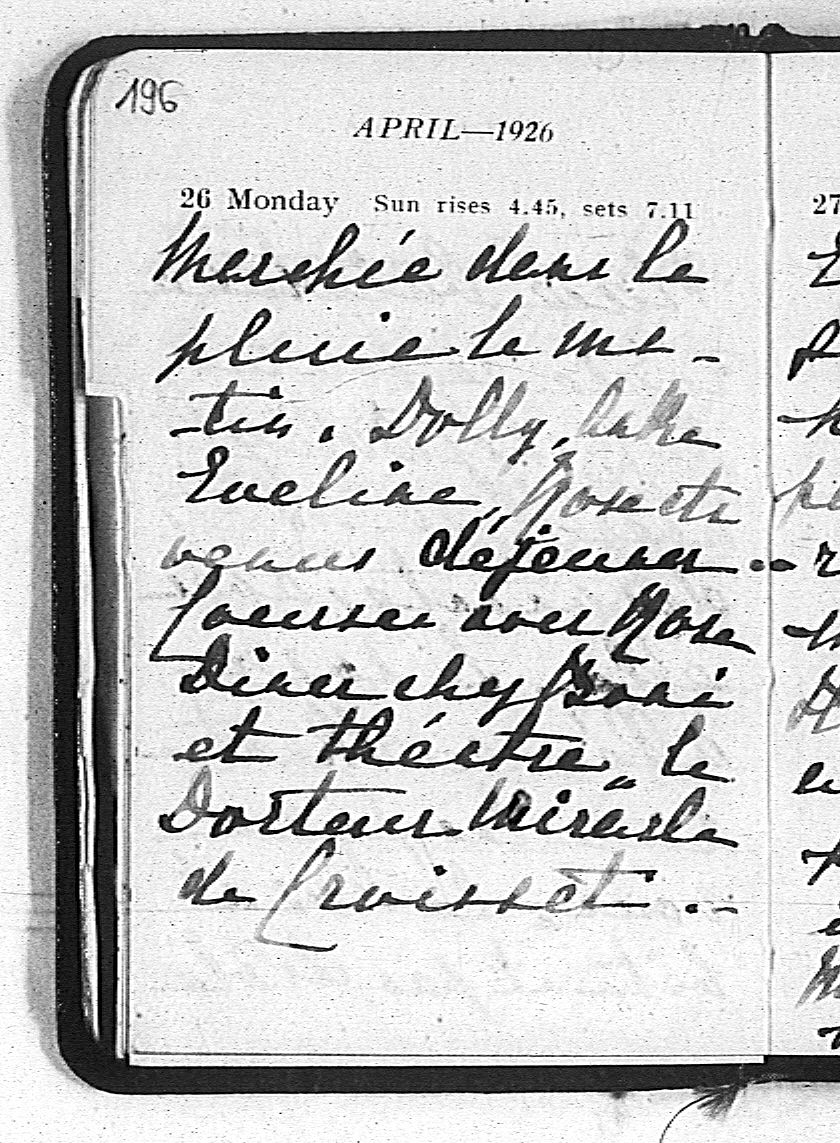 196
APRIL—1926
26 Monday Sun rises 4.45, sets 7.11
Marchée dans la
pluie le ma-
-tin. Dolly,
Eveline, Rose etc
venus déjeuner..
Courses avec Rose
Diner chy
et théatre "le
Docteur Miracle
de Croisset.-
27